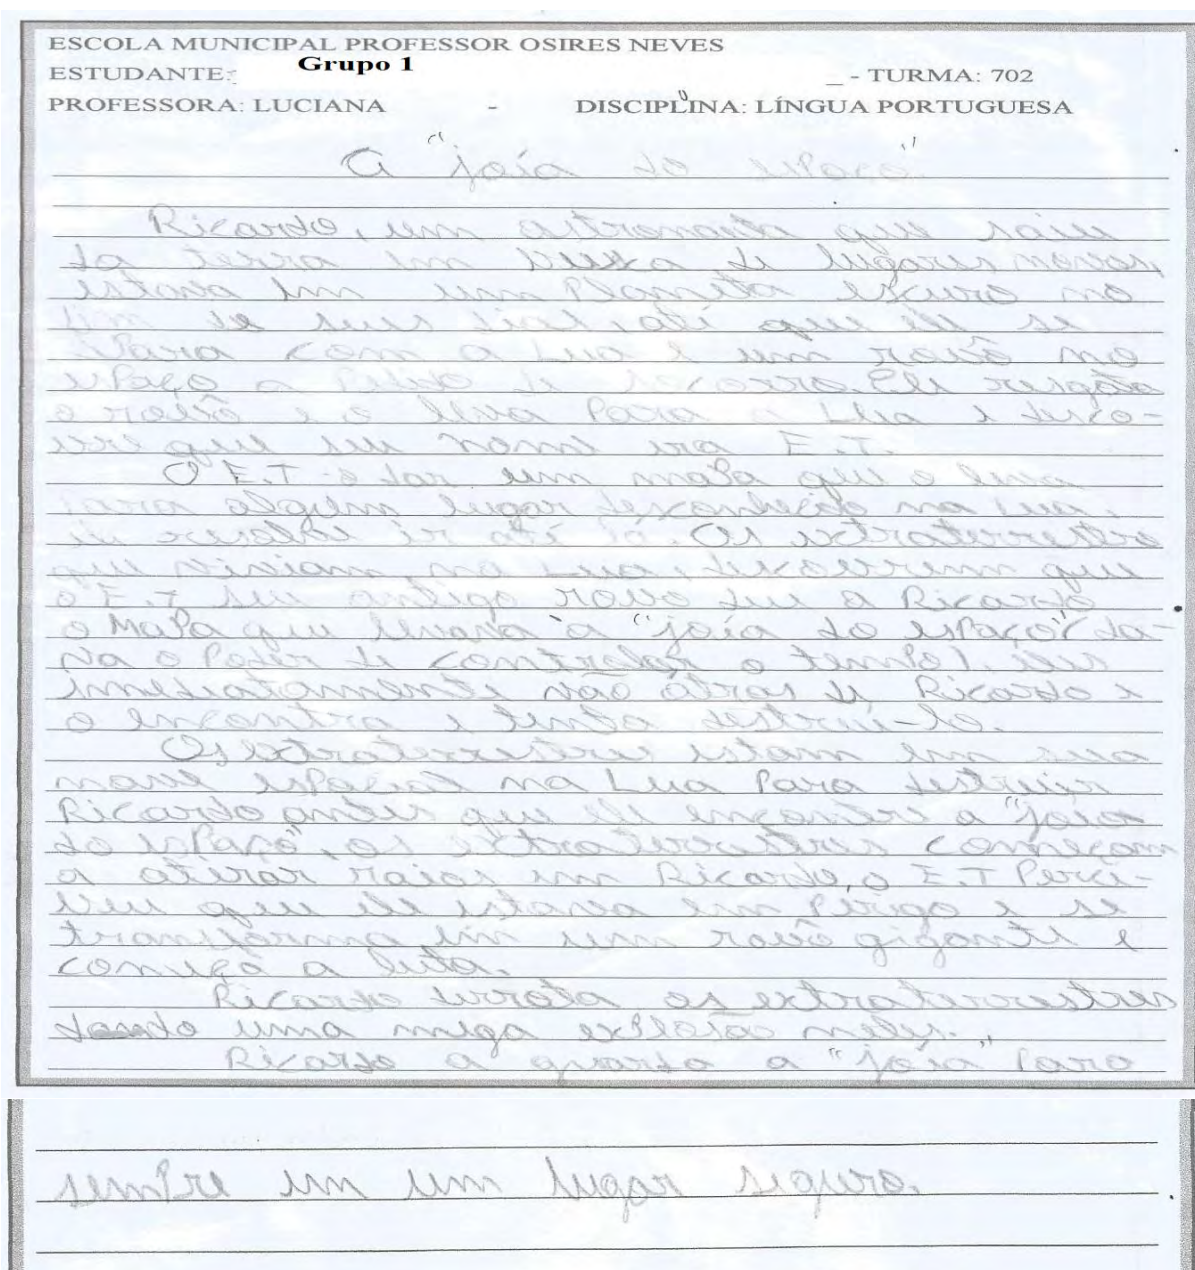 ESCOLA MUNICIPAL PROFESSOR OSIRES NEVES
ESTUDANTE: Grupo 1 - TURMA: 702
PROFESSORA: LUCIANA - DISCIPLINA: LÍNGUA PORTUGUESA
A "joía do espaço"
Ricardo, um astronauta que saiu
da terra em busca de lugares novos,
estava em um Planeta escuro no
fim de seus dias, até que ele se
Para com a Lua e um robô no
espaço a Pedido de socorro. Ele resgata
o robô e o leva Para a Lua e desco-
bre que seu nome era E.T.
O E.T o dar um mapa que o leva
Para algum lugar desconhecido na Lua,
ele resolve ir até lá. Os extraterrestres
que viviam na Lua, descobrem que
o E.T seu antigo robô deu a Ricardo
o Mapa que levará a "joía do espaço" (da-
va o Poder de controlar o tempo). eles
imediatamente vão atras de Ricardo e
o encontra e tenta destruí-lo.
Os extraterrestres estam em sua
nave espacial na Lua Para destruir
Ricardo antes que ele encontre a "joía
do espaço", os extraterrestres começam
a atirar raios em Ricardo, o E.T Perce-
beu que ele estava em Perigo e se
transforma em um robô gigante e
começa a luta.
Ricardo derrota os extraterrestres
dando uma mega explosão neles.
Ricardo a guarda a "joía" Para
sempre em um lugar seguro.